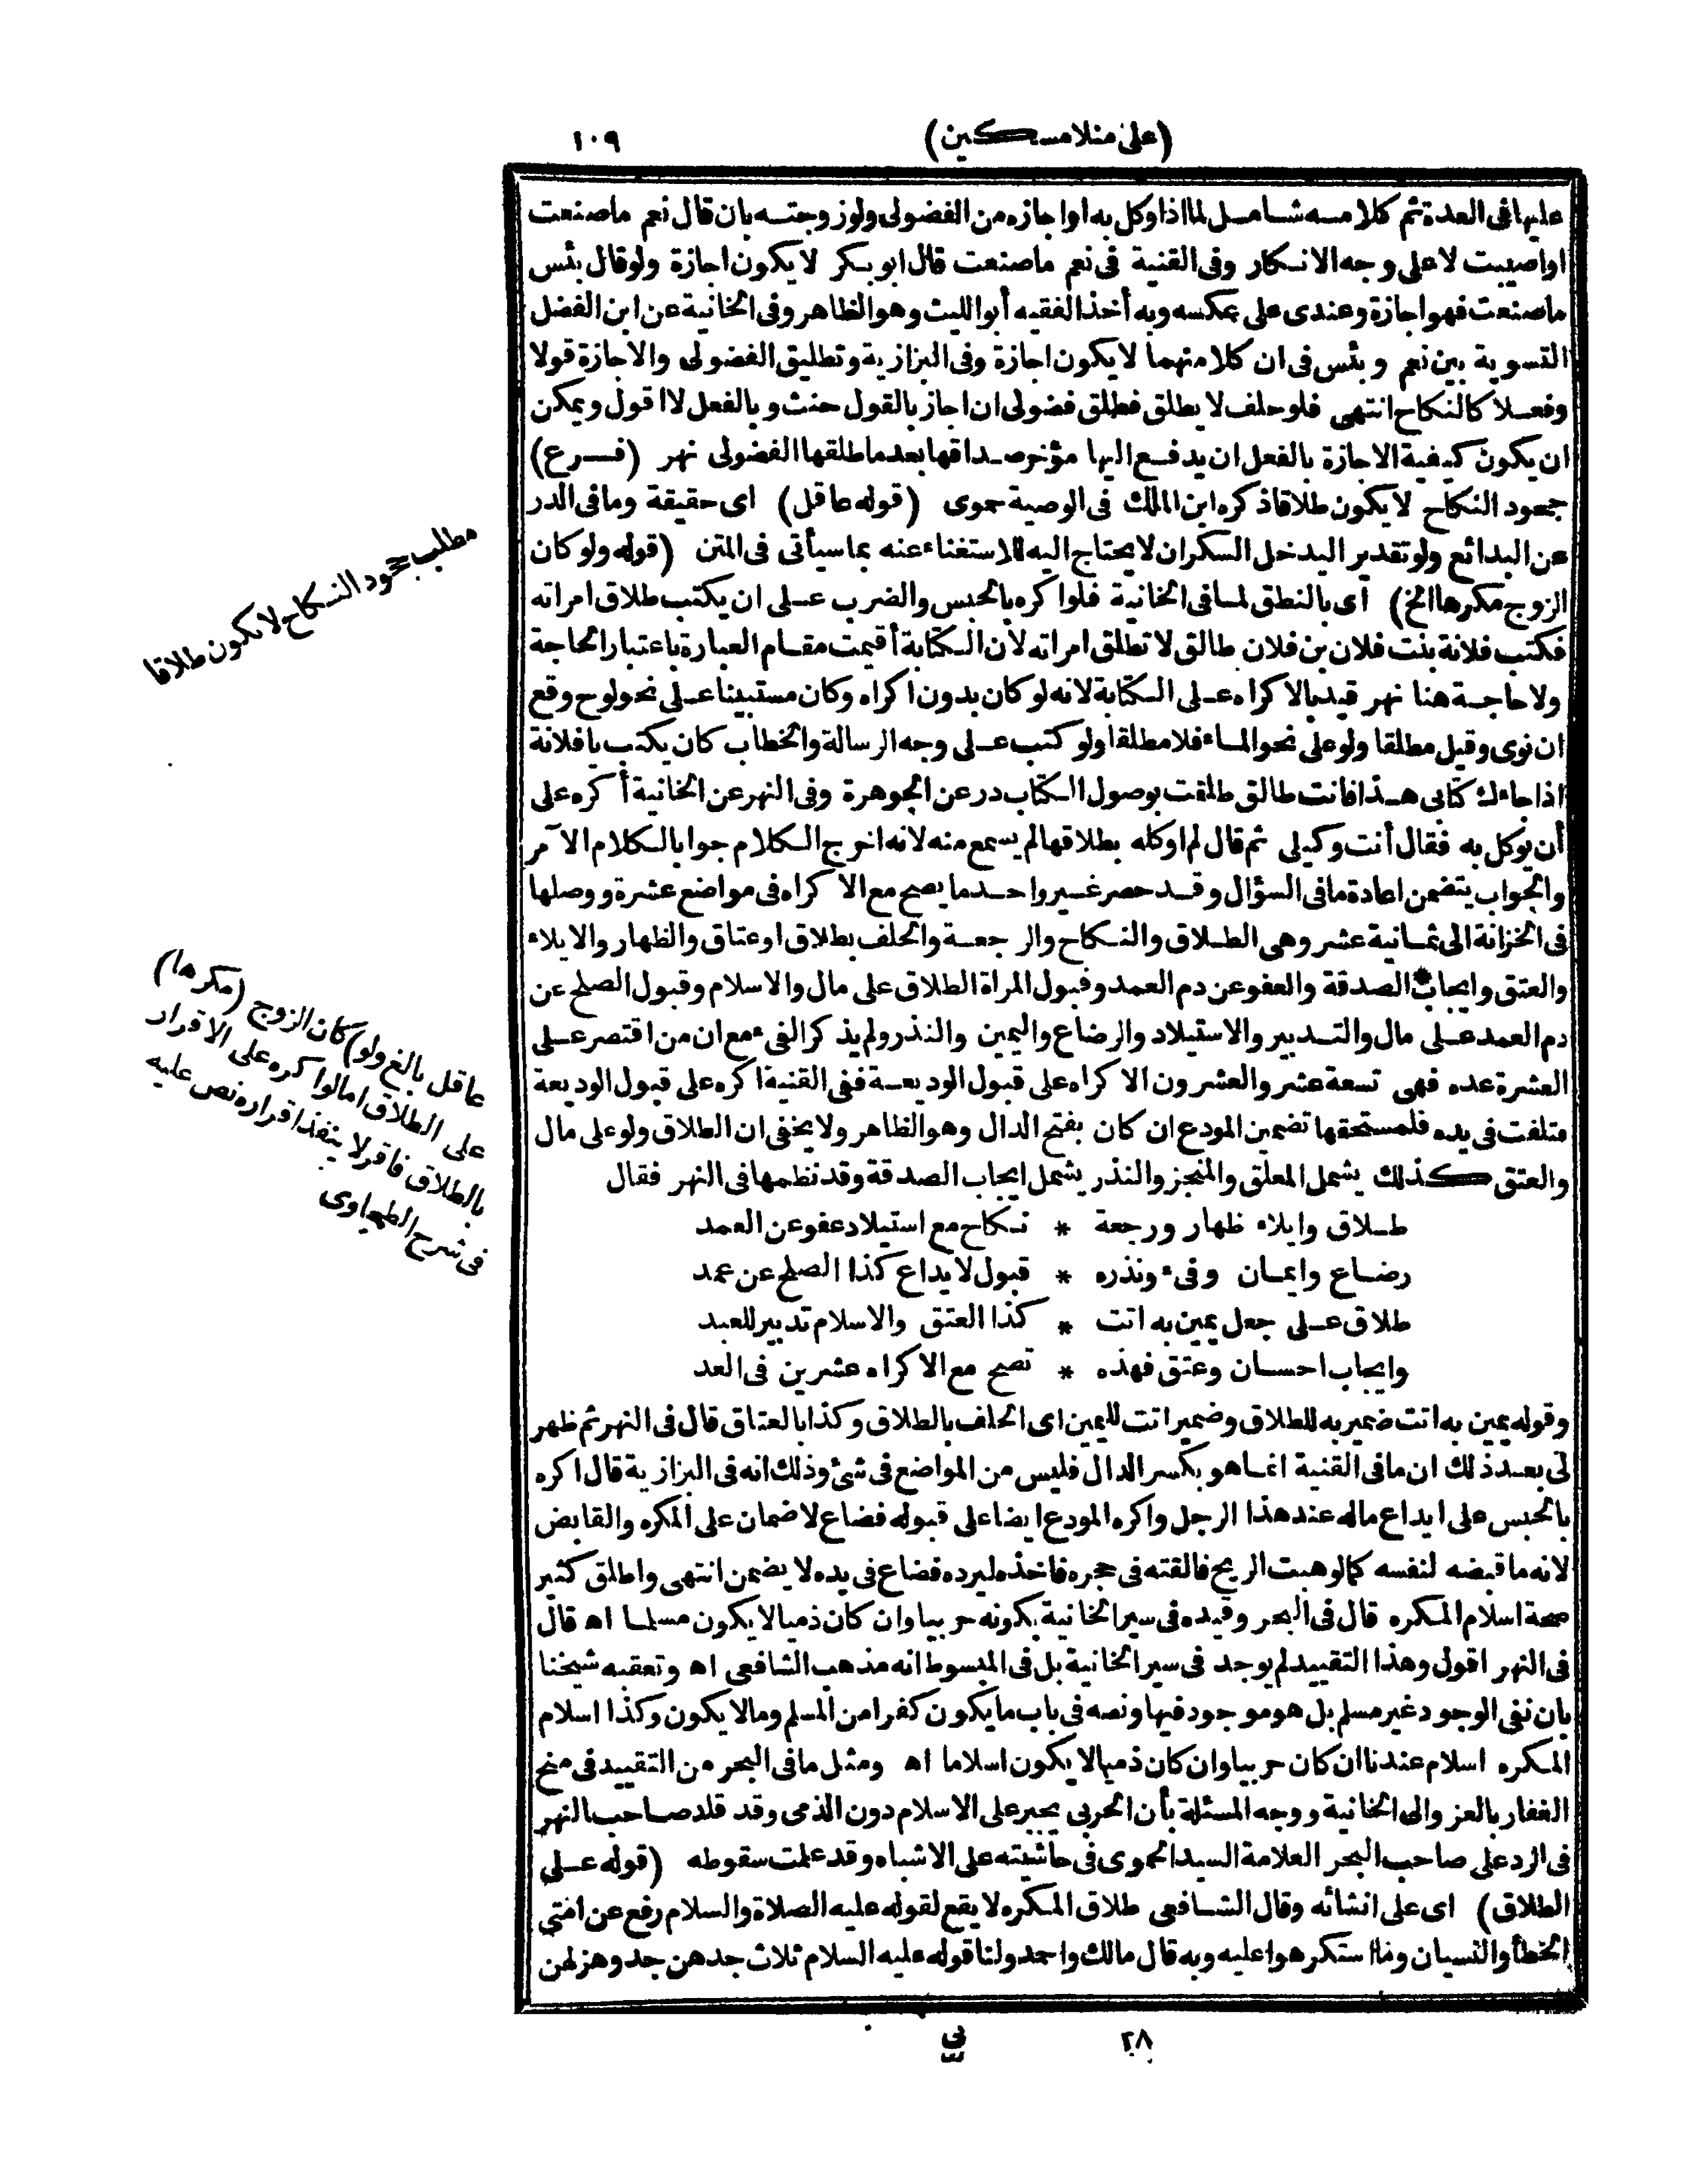 (على منلا مسكين) ١٠٩
عليها فى العدة ثم كلامه شامل لما اذا وكل به او اجازه من الفضولى ولو زوجته بان قال نعم ما صنعت
او اصبت لا على وجه الانكار وفى القنية فى نعم ما صنعت قال ابو بكر لا يكون اجازة ولو قال بئس
ما صنعت فهو اجازة وعندى على عكسه وبه أخذ الفقيه أبو الليث وهو الظاهر وفى الخانية عن ابن الفضل
التسوية بين نعم وبئس فى ان كلا منهما لا يكون اجازة وفى البزازية وتطليق الفضولى والاجازة قولا
وفعلا كالنكاح انتهى فلو حلف لا يطلق فطلق فضولى ان اجاز بالقول حنث وبالفعل لا اقول ويمكن
ان يكون كيفية الاجازة بالفعل ان يدفع اليها مؤخر صداقها بعد ما طلقها الفضولى نهر (فرع)
جحود النكاح لا يكون طلاقا ذكره ابن الملك فى الوصية حموى (قوله عاقل) اى حقيقة وما فى الدر
عن البدائع ولو تقدير اليدخل السكران لا يحتاج اليه للاستغناء عنه بما سيأتى فى المتن (قوله ولو كان
الزوج مكرها الخ) أى بالنطق لما فى الخانية فلو اكره بالحبس والضرب على ان يكتب طلاق امراته
فكتب فلانة بنت فلان بن فلان طالق لا تطلق امراته لان الكتابة أقيمت مقام العبارة باعتبار الحاجة
ولا حاجة هنا نهر قيد بالاكراه على الكتابة لانه لو كان بدون اكراه وكان مستبينا على نحو لوح وقع
ان نوى وقيل مطلقا ولو على نحو الماء فلا مطلقا ولو كتب على وجه الرسالة والخطاب كان يكتب يا فلانة
اذا جاءك كتابى هذا فانت طالق طلقت بوصول الكتاب در عن الجوهرة وفى النهر عن الخانية أكره على
أن يوكل به فقال أنت وكيلى ثم قال لم اوكله بطلاقها لم يسمع منه لانه اخرج الكلام جوابا لكلام الآمر
والجواب يتضمن اعادة ما فى السؤال وقد حصر غير واحد ما يصح مع الاكراه فى مواضع عشرة ووصلها
فى الخزانة الى ثمانية عشر وهى الطلاق والنكاح والرجعة والحلف بطلاق او عتاق والظهار والايلاء
والعتق وايجاب الصدقة والعفو عن دم العمد وقبول المراة الطلاق على مال والاسلام وقبول الصلح عن
دم العمد على مال والتدبير والاستيلاد والرضاع واليمين والنذر ولم يذكر الفىء مع ان من اقتصر على
العشرة عده فهى تسعة عشر والعشرون الاكراه على قبول الوديعة ففى القنية اكره على قبول الوديعة
فتلفت فى يده فلمستحقها تضمين المودع ان كان بفتح الدال وهو الظاهر ولا يخفى ان الطلاق ولو على مال
والعتق كذلك يشمل المعلق والمنجز والنذر يشمل ايجاب الصدقة وقد نظمها فى النهر فقال
طلاق وايلاء ظهار ورجعة * نكاح مع استيلاد عفو عن العمد
رضاع وايمان وفىء ونذره * قبول لايداع كذا الصلح عن عمد
طلاق على جعل يمين به اتت * كذا العتق والاسلام تدبير للعبد
وايجاب احسان وعتق فهذه * تصح مع الاكراه عشرين فى العد
وقوله يمين به اتت ضمير به للطلاق وضمير اتت لليمين اى الحلف بالطلاق وكذا بالعتاق قال فى النهر ثم ظهر
لى بعد ذلك ان ما فى القنية انما هو بكسر الدال فليس من المواضع فى شئ وذلك انه فى البزازية قال اكره
بالحبس على ايداع ماله عند هذا الرجل واكره المودع ايضا على قبوله فضاع لا ضمان على المكره والقابض
لانه ما قبضه لنفسه كما لو هبت الريح فالقته فى حجره فاخذه ليرده فضاع فى يده لا يضمن انتهى واطلق كثير
صحة اسلام المكره قال فى البحر وقيده فى سير الخانية بكونه حربيا وان كان ذميا لا يكون مسلما اه قال
فى النهر اقول وهذا التقييد لم يوجد فى سير الخانية بل فى المبسوط انه مذهب الشافعى اه وتعقبه شيخنا
بان نفى الوجود غير مسلم بل هو موجود فيها ونصه فى باب ما يكون كفرا من المسلم وما لا يكون وكذا اسلام
المكره اسلام عندنا ان كان حربيا وان كان ذميا لا يكون اسلاما اه ومثل ما فى البحر من التقييد فى منح
الغفار بالعزو الى الخانية ووجه المسئلة بأن الحربى يجبر على الاسلام دون الذمى وقد قلد صاحب النهر
فى الرد على صاحب البحر العلامة السيد الحموى فى حاشيته على الاشباه وقد علمت سقوطه (قوله على
الطلاق) اى على انشائه وقال الشافعى طلاق المكره لا يقع لقوله عليه الصلاة والسلام رفع عن امتى
الخطأ والنسيان وما استكرهوا عليه وبه قال مالك واحمد ولنا قوله عليه السلام ثلاث جدهن جد وهزلهن
مطلب جحود النكاح لا يكون طلاقا
عاقل بالغ ولو) كان الزوج (مكرها)
على الطلاق اما لو اكره على الاقرار
بالطلاق فاقر لا ينفذ اقراره نص عليه
فى شرح الطحاوى
٢٨ نى